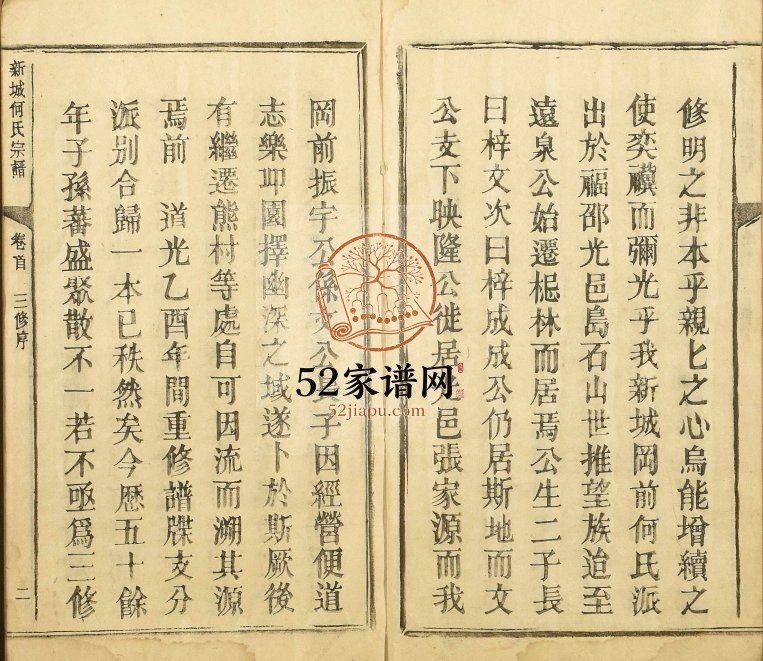 修明之非本乎親匕之心烏能增續之
使奕禩而彌光乎我新城岡前何氏派
出於福邵光邑島石山世推望族迨至
遠泉公始遷梔林而居焉公生二子長
曰梓文次曰梓成成公仍居斯地而文
公支下映隆公徙居 邑張家源而我
岡前振宇公係文公 子因經營便道
志樂卭園擇幽深之域遂卜於斯厥後
有繼遷熊村等處自可因流而溯其源
焉前 道光乙酉年間重修譜牒支分
派別合歸一本已秩然矣今歷五十餘
年子孫蕃盛聚散不一若不亟爲三修
新城何氏宗譜 卷首 三修序 二
52家谱网
52jiapu.com